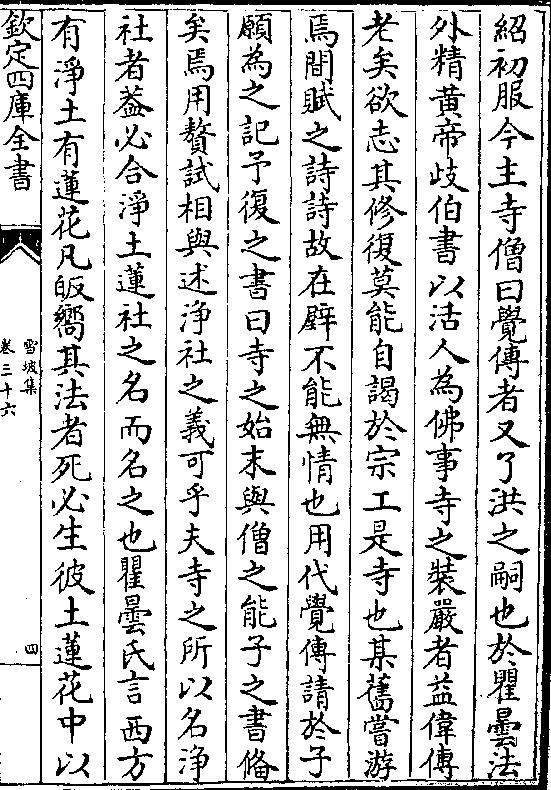 紹初服今主寺僧曰覺傳者又了洪之嗣也於瞿曇法
外精黄帝歧伯書以活人為佛事寺之裝嚴者益偉傳
老矣欲志其修復莫能自謁於宗工是寺也某舊嘗游
焉間賦之詩詩故在壁不能無情也用代覺傳請於子
願為之記予復之書曰寺之始末與僧之能子之書備
矣焉用贅試相與述浄社之義可乎夫寺之所以名浄
社者葢必合淨土蓮社之名而名之也瞿曇氏言西方
有淨土有蓮花凡皈嚮其法者死必生彼土蓮花中以
欽定四庫全書
雪坡集
卷三十六
四